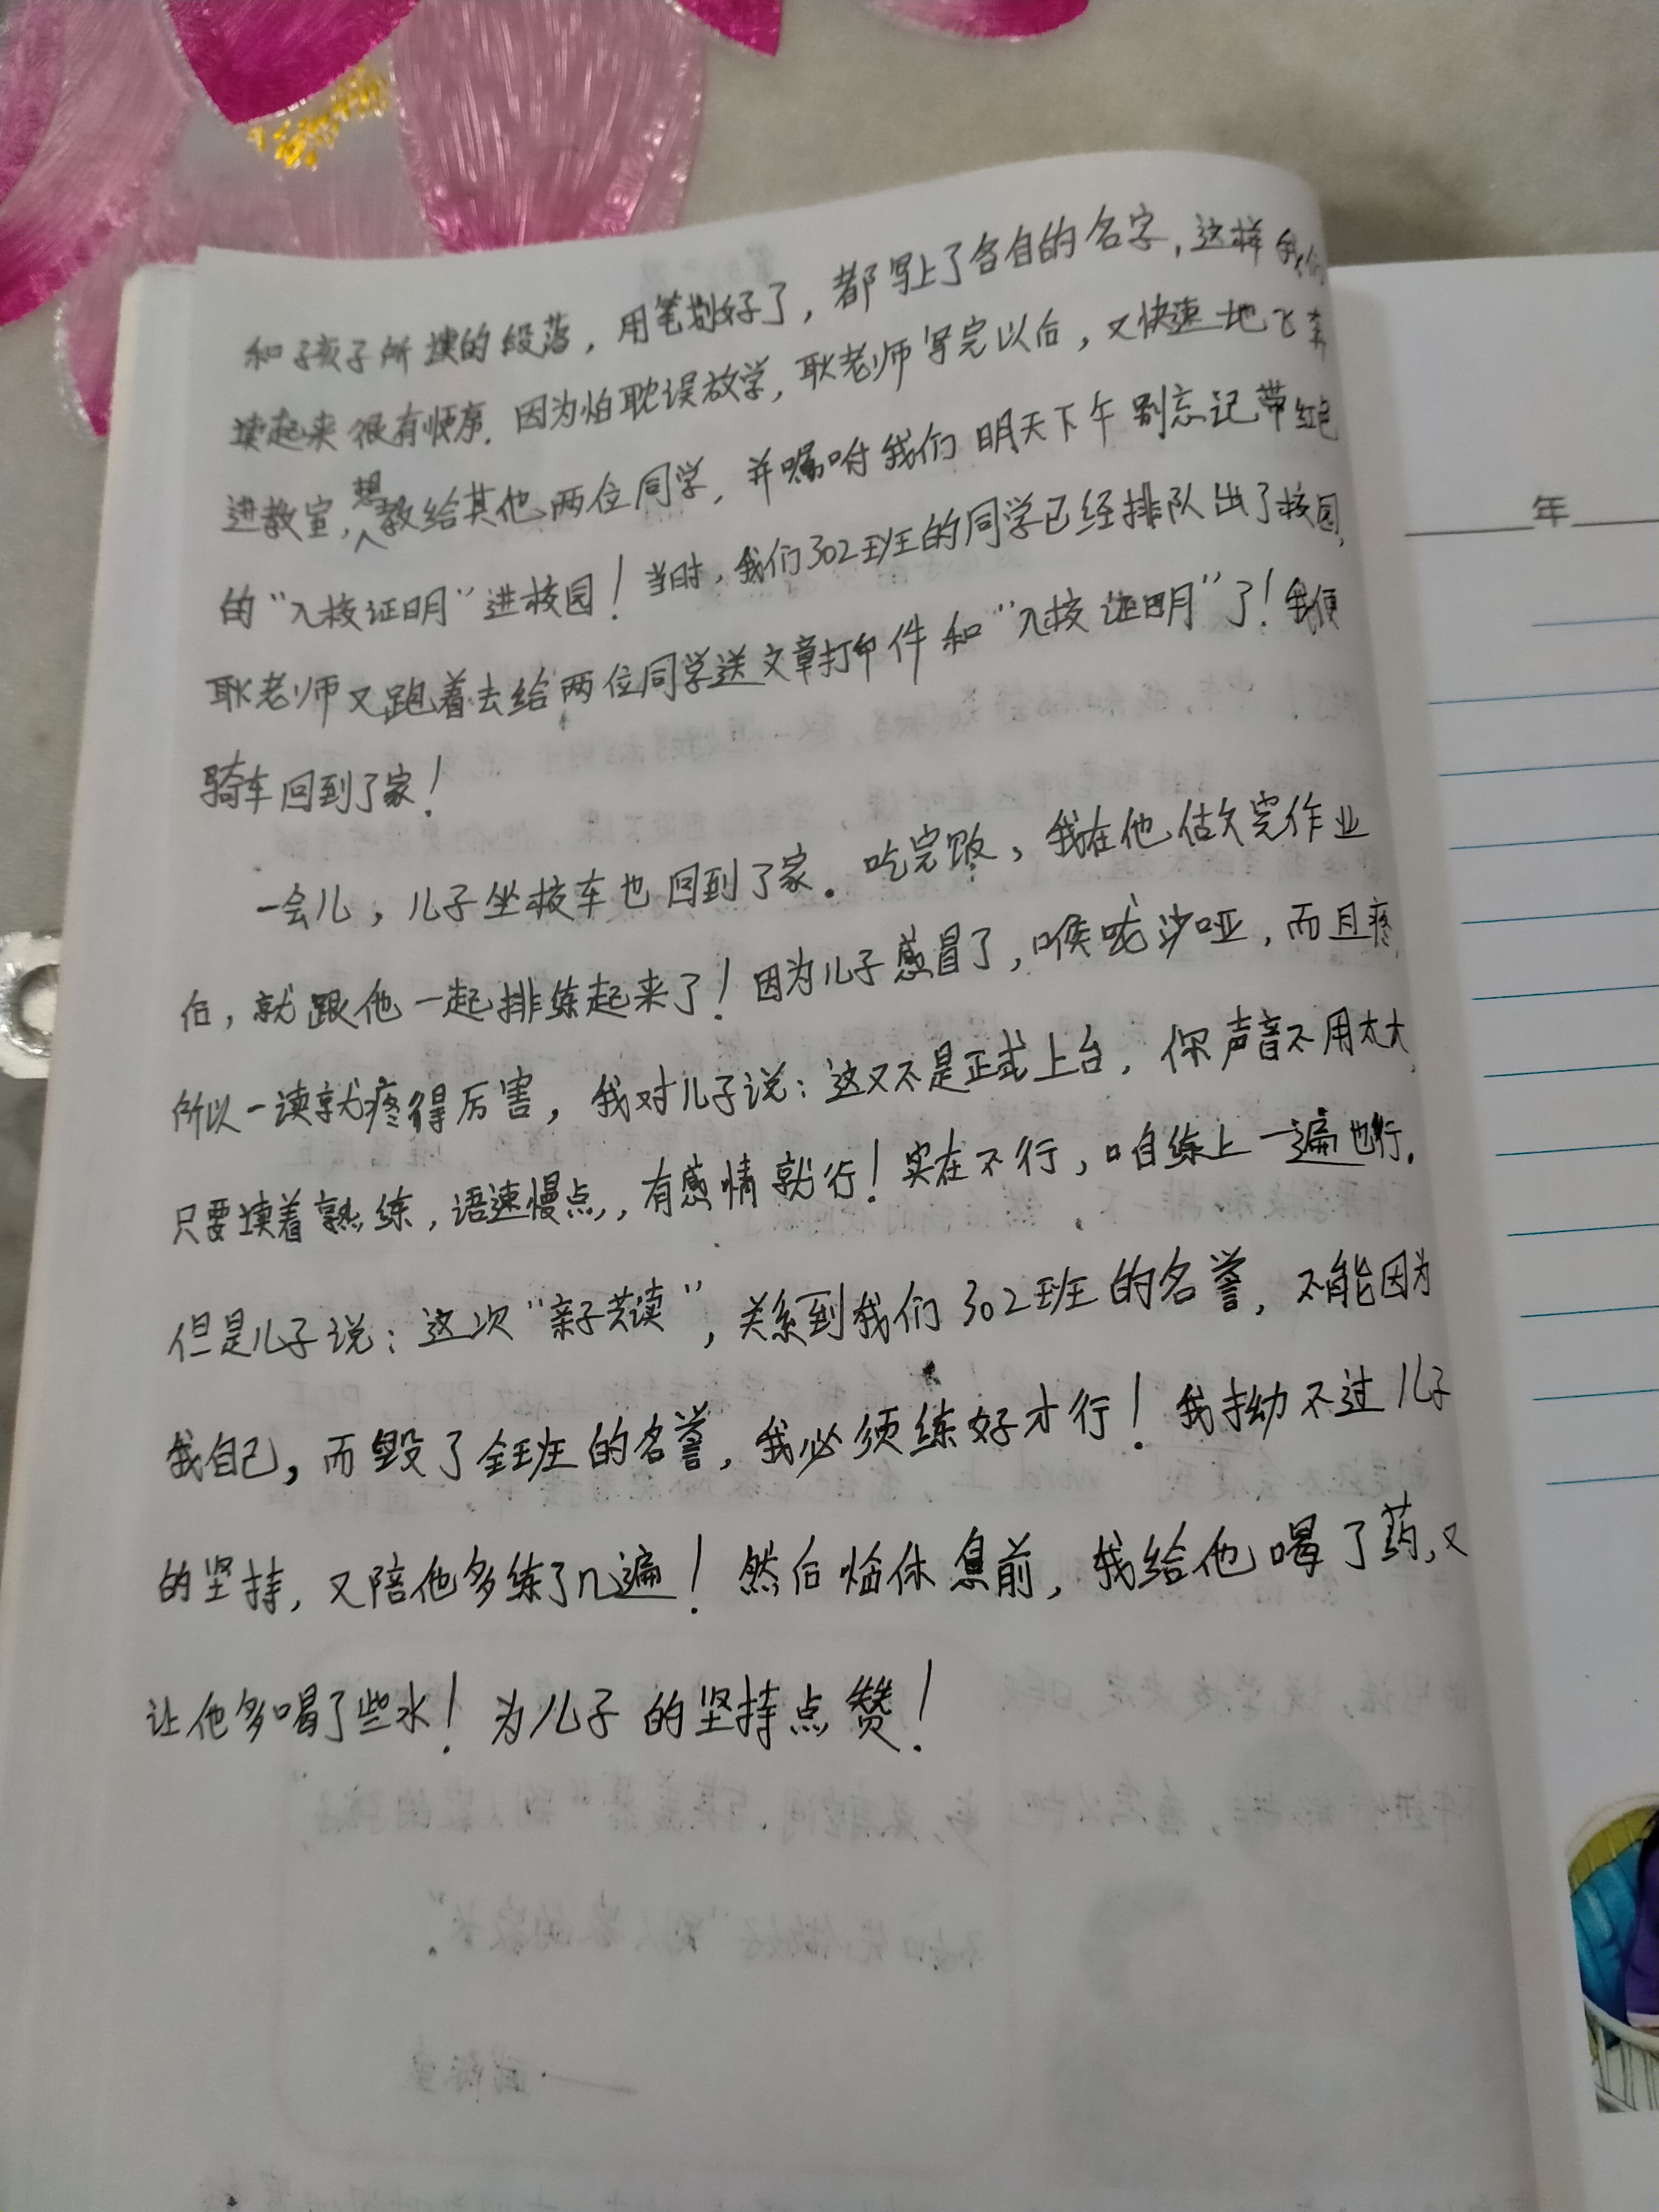 和孩子所读的段落，用笔划好了，都写上了各自的名字，这样我们
读起来很有顺序。因为怕耽误放学，耿老师写完以后，又快速地飞奔
进教室，想教给其他两位同学，并嘱咐我们明天下午别忘记带红色
的“入校证明”进校园！当时，我们302班的同学已经排队出了校园，
耿老师又跑着去给两位同学送文章打印件和“入校证明”了！我便
骑车回到了家！
一会儿，儿子坐校车也回到了家。吃完饭，我在他做完作业
后，就跟他一起排练起来了！因为儿子感冒了，喉咙沙哑，而且疼，
所以一读就疼得厉害，我对儿子说：这又不是正式上台，你声音不用太大，
只要读着熟练，语速慢点，有感情就行！实在不行，咱练上一遍也行。
但是儿子说：这次“亲子共读”，关系到我们302班的名誉，不能因为
我自己，而毁了全班的名誉，我必须练好才行！我拗不过儿子
的坚持，又陪他多练了几遍！然后临休息前，我给他喝了药，又
让他多喝了些水！为儿子的坚持点赞！
年